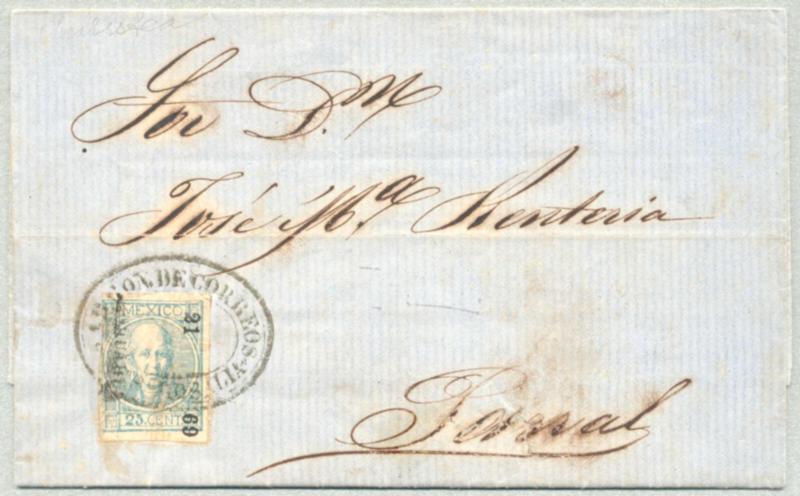 Sor D.n M
José Ma. Renteria
DE CORREOS
MEXICO
21
69
25. CENT
Parral